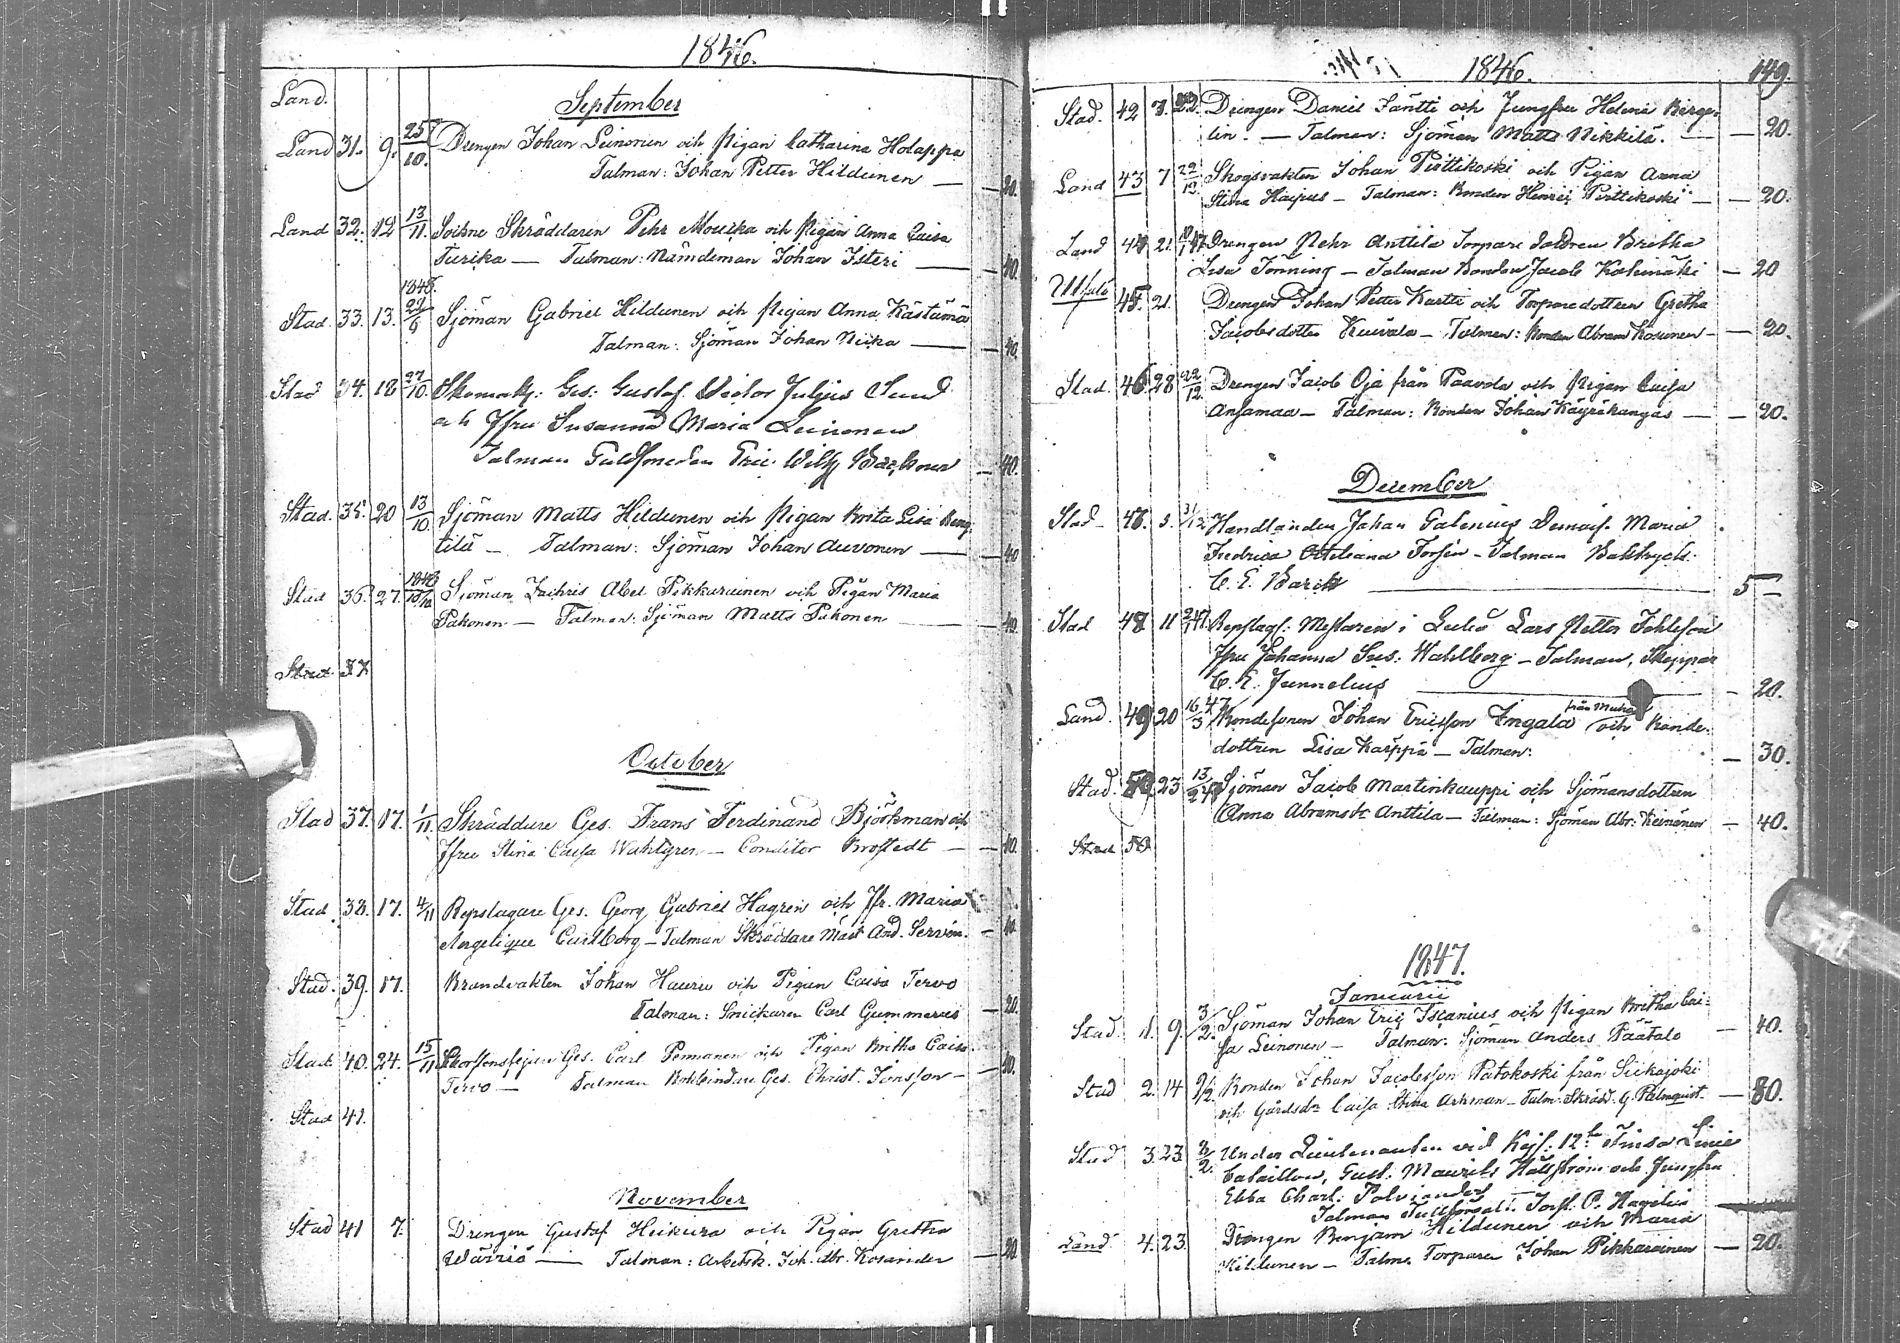 1846.
Land.
September
Land 31. 9. 25/10. Drengen Johan Leinonen och Pigan Catharina Holappa
Talman: Johan Petter Hildunen — 20.
Land 32. 12 13/11. Soldaten Skräddaren Pehr Mourika och Pigan Anna Caisa
Turika — Talman: Nämdeman Johan Isteri — 40.
1846.
Stad 33. 13. 29/6 Sjöman Gabriel Hildunen och Pigan Anna Kästämä
Talman: Sjöman Johan Nicka — 40.
Stad 34. 18 27/10. Skomak: Ges: Gustaf Victor Julius Sund
och Jfru Susanna Maria Leinonen
Talman Guldsmeden Eric Wilh Backman — 40.
Stad. 35. 20 13/10 Sjöman Matts Hildunen och Pigan Brita Lisa Beng
tilä — Talman: Sjöman Johan Auvonen — 40
Stad 36. 27. Sjöman Zachris Abel Pikkarainen och Pigan Maria
Pakonen — Talman: Sjöman Matts Pakonen — 40
Stad 37
October
Stad 37. 17. 1/11. Skräddare Ges. Frans Ferdinand Björkman och
Jfru Stina Caisa Wahlgren — Conditor Brostedt — 40.
Stad. 38. 17. 4/11 Repslagare Ges. Georg Gabriel Hagren och Jfr. Maria
Angelique Carlborg — Talman Skräddare Mäst And. Servin. — 40.
Stad. 39. 17. Brandvakten Johan Hauru och Pigan Caisa Tervo
Talman: Snickaren Carl Gummerus — 20.
Stad 40. 24. 15/11 Skorstensfejare Ges. Carl Pennanen och Pigan Britha Caisa
Tervo — Talman Bokbindare Ges. Christ. Jonsson — 40.
Stad 41.
November
Stad 41 7. Drengen Gustaf Heikura och Pigan Gretha
Wärriö — Talman: Arbetsk. Joh. Abr. Kosander — 20
1846. 149.
Stad. 42 7. 22. Drengen Daniel Jäntti och Jungfru Helena Berge-
lin. — Talman: Sjöman Matts Nikkilä. — 20.
Land 43 7 22/12. Skogsvakten Johan Pirttikoski och Pigan Anna
Stina Haipus — Talman: Bonden Henric Pirttikoski — 20.
Land 44 21. Drengen Pehr Anttila Torpare dottren Britha
Lisa Tönning — Talman Bonden Jacob Kalimäki — 20
45. 21. Drengen Johan Petter Kurtti och Torparedottren Gretha
Jacobsdotter Kuivala — Talman: Bonden Abram Kosunen — 20.
Stad. 46 28 22/12. Drengen Jacob Oja från Paavola och Pigan Caisa
Ansamaa — Talman: Bonden Johan Käyräkangas — 20.
December
Stad — 47. 5. 31/12 Handlanden Johan Galenius Demois. Maria
Fredrica Forsén — Talman Boktryck.
C. E. Barck — 5 —
Stad 48. 11 Repslag. Mästaren i Luleå Lars Petter
Jfru Johanna Sus: Wahlberg — Talman, Skeppar
C. E. Junnelius — 20.
Land. 49 20 16/3 47 Bondesonen Johan Ericsson Engala från Muhos och Bonde-
dottren Lisa Karppa — Talman: — 30.
Stad. 50. 23 13/2 47 Sjöman Jacob Martinkauppi och Sjömansdottren
Anna Abramsdr Anttila — Talman: Sjöman Abr: Keinänen — 40.
Stad 50
1847.
Januarii
Stad 1. 9. 3/2. Sjöman Johan Eric Iscanius och Pigan Britha Cai-
sa Leinonen — Talman: Sjöman Anders Päätalo — 40.
Stad 2. 14 9/2. Bonden Johan Jacobsson Patokoski från Siikajoki
och Gårdsdr Caisa Stina Arkman — Talm. Skräd. G. Palmquist — 80.
Stad 3. 23. 2/2. Under Lieutenanten vid Kejs: 12te Finska Linie
bataillon, Gust. Maurits Hällström och Jungfru
Ebba Charl. Polviander
Talman
Land 4. 23. Drengen Benjam Hildunen och Maria
Hildunen — Talm. Torparen Johan Pikkarainen — 20.